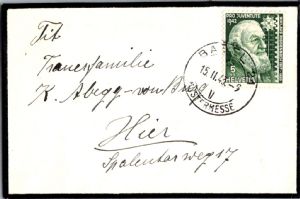 Tit
Trauerfamilie
K. Abegg-von
Hier
Spalentorweg 17
PRO JUVENTUTE
1942
5
HELVETIA
BASEL
15.II.43.-
MUSTERMESSE